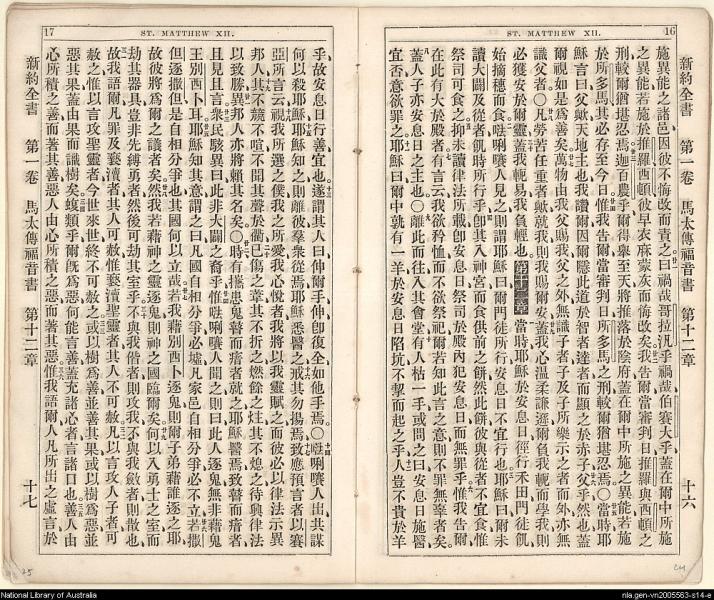 ST. MATTHEW XII. 16
新約全書 第一卷 馬太傳福音書 第十二章 十六
施異能之諸邑因彼不悔改而責之曰禍哉哥拉汎乎禍哉伯賽大乎蓋在爾中所施
之異能若施於推羅西頓彼早衣麻蒙灰而悔改矣我告爾當審判日推羅與西頓之
刑較爾猶堪忍焉迦百農乎爾得舉至天將推落於陰府蓋在爾中所施之異能若施
於所多馬其必存至今日惟我告爾當審判日所多馬之刑較爾猶堪忍焉〇當時耶
穌言曰父歟天地主也我讚爾因爾隱此道於智者達者而顯之於赤子父乎然也蓋
爾視如是為善矣萬物由我父賜我父之外無識子者子及子所樂示之者而外亦無
識父者〇凡勞苦任重者就我則我賜爾安蓋我心溫柔謙遜爾負我軛而學我則
必獲安於爾靈蓋我軛易我負輕也 第十二章 當時耶穌於安息日徑行禾田門徒飢
始摘穗而食唎人見之則謂耶穌曰爾門徒所行安息日不宜行也耶穌曰爾未
讀大闢及從者飢時所行乎即其入神宮而食供前之餅然此餅彼與從者不宜食惟
祭司可食之抑未讀律法所載即安息日祭司於殿內犯安息日而無罪乎惟我告爾
在此有大於殿者有言云我欲矜恤而不欲祭祀爾若知此言之意則不罪無辜者矣
蓋人子亦安息日之主也〇離此而往入其會堂有人枯一手或問之曰安息日施醫
宜否意欲罪之耶穌曰爾中孰有一羊於安息日陷坑不挈而起之乎人豈不貴於羊
17 ST. MATTHEW XII.
乎故安息日行善宜也遂謂其人曰伸爾手伸即復全如他手焉〇唎人出共謀
何以殺耶穌耶穌知之則離彼群眾從焉耶穌悉醫之戒其勿揚焉致應預言者以賽
亞所言云視我所選之僕我之所愛我心悅者我將以我靈賦之而彼必以律法示異
邦人其不競不喧不聞其聲於衢已傷之葦其不折之燃餘之炷其不熄之待興律法
以致勝異邦人亦將賴其名矣〇時有攜患鬼瞽而瘖者就之耶穌醫焉致瞽而瘖者
且見且言眾民駭異曰此非大闢之裔乎惟唎人聞之則曰此人逐鬼無非藉鬼
王別西卜耳耶穌知其意謂之曰凡國自相分爭必墟凡家邑自相分爭必不立若撒
但逐撒但是自相分爭也其國何以立哉若我藉別西卜逐鬼則爾子弟藉誰逐之耶
故彼將為爾之議者矣然我若藉神之靈逐鬼則神之國臨爾矣何以入勇士之室而
劫其器具豈非先縛勇者然後可劫其室乎不與我偕者則攻我不與我斂者則散也
故我語爾凡罪及褻瀆者其人可赦惟褻瀆聖靈者其人不可赦凡以言攻人子者可
赦之惟以言攻聖靈者今世來世終不可赦之或以樹為善並善其果或以樹為惡並
惡其果蓋由果而識樹矣蝮類乎爾既為惡何能言善蓋充諸心者言諸口也善人由
心所積之善而著其善惡人由心所積之惡而著其惡惟我語爾人凡所出之虛言於
新約全書 第一卷 馬太傳福音書 第十二章 十七
National Library of Australia
nla.gen-vn2005563-s14-e